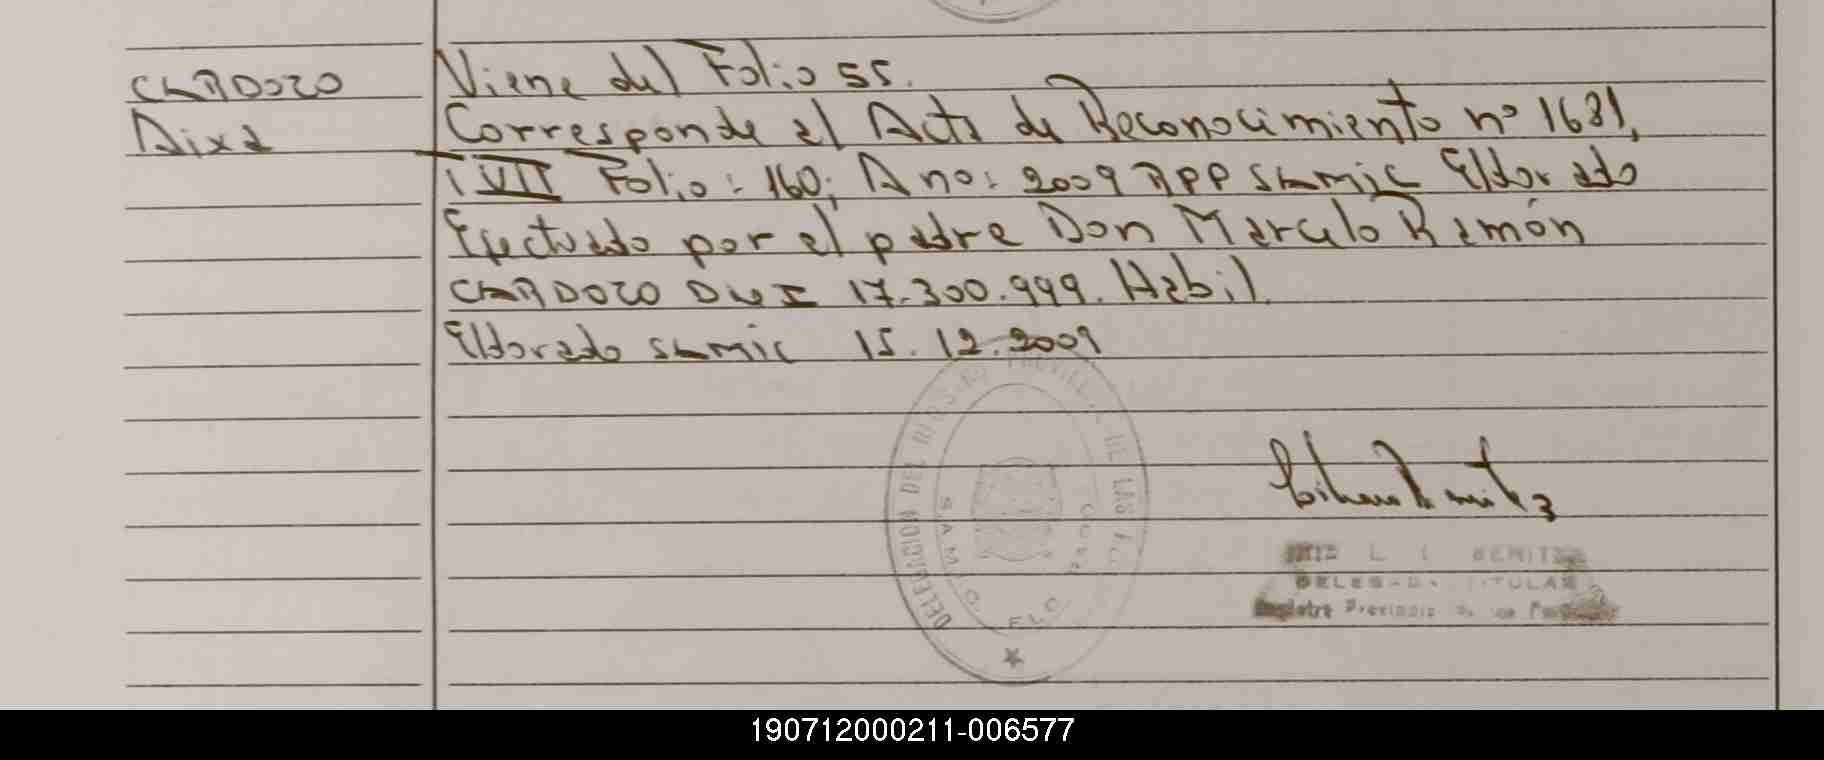 CARDOZO
Aixa
Viene del Folio 55.
Corresponde al Acta de Reconocimiento nº 1681,
T VII Folio: 160; Ano: 2009 RPP SAMIC Eldorado
Efectuado por el padre Don Marcelo Ramón
CARDOZO DNI 17.300.999. Habil.
Eldorado SAMIC 15.12.2009
DELEGACION DEL DE LAS
S.A.M.I.C. ELD
BENIT
DELEGADA TITULAR
Registro Provincia de las
190712000211-006577